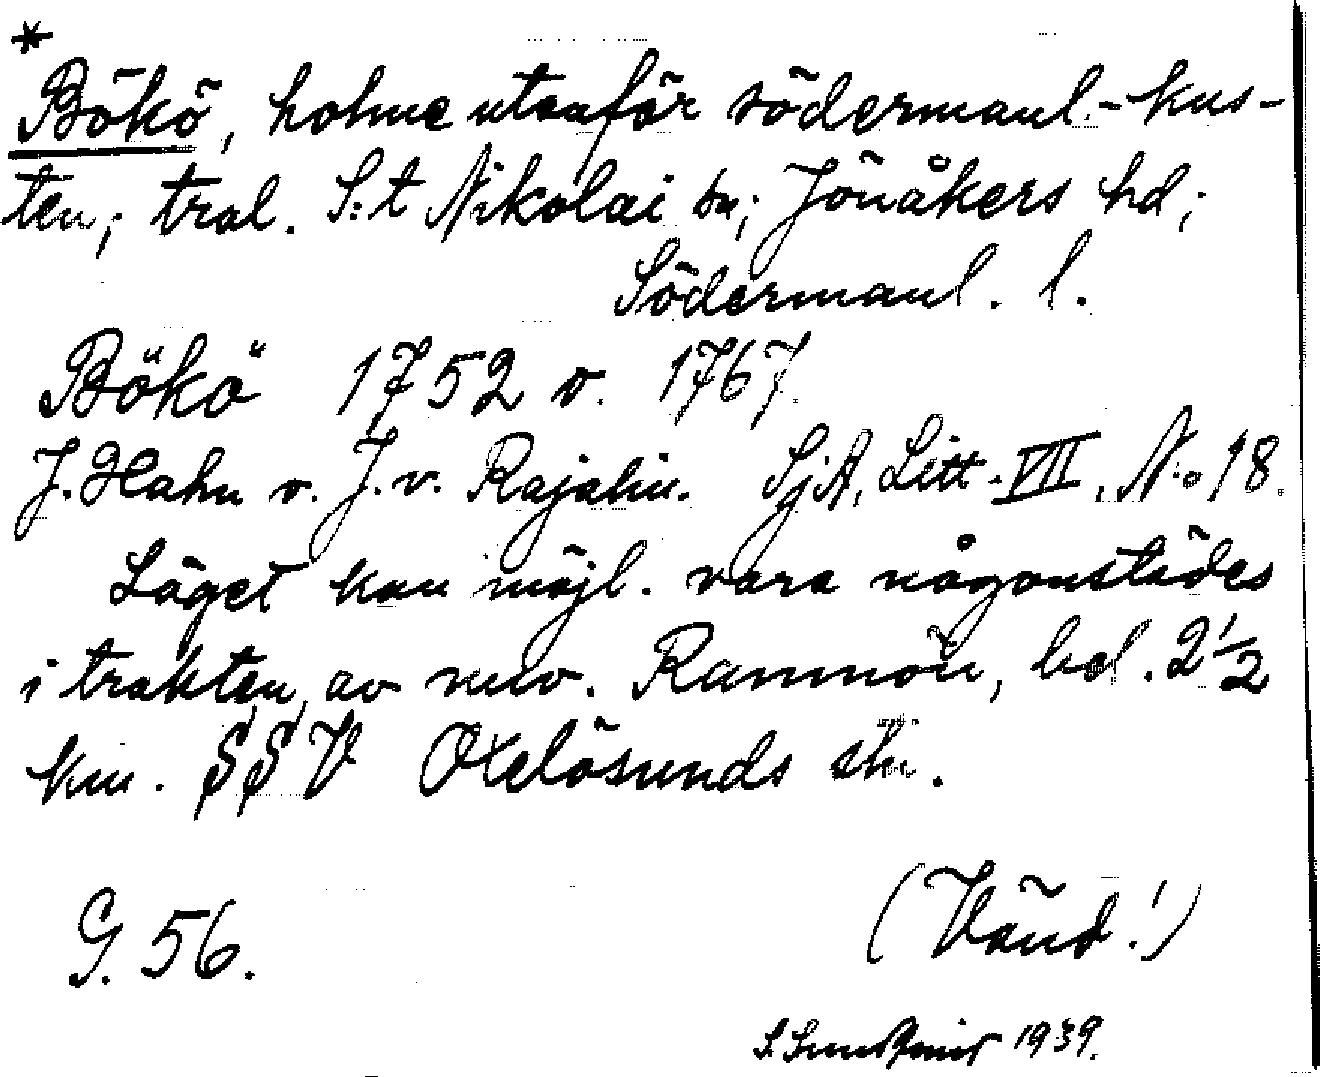 *
Bökö, holme utanför södermanl.-kus-
ten; trol. S:t Nikolai sn; Jönåkers hd;
Södermanl. l.
Bökö 1752 o. 1767
J. Hahn o. J. v. Rajalin. SjA, Litt. VII, No 18.
Läget kan möjl. vara någonstädes
i trakten av nuv. Rammön, bel. 2 1/2
km. SSV Oxelösunds stn.
G. 56.
(Vänd!)
1939.